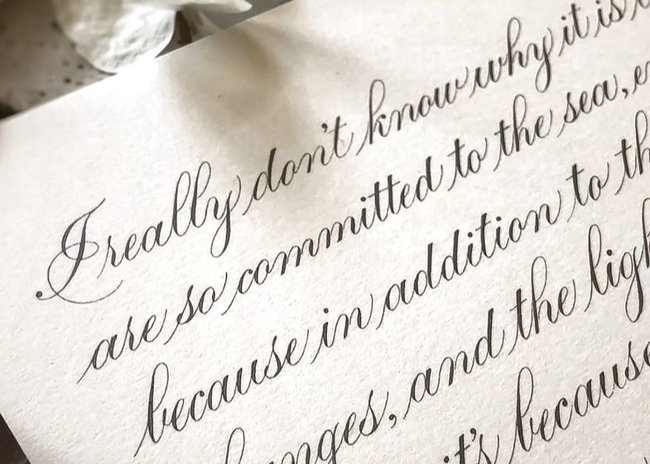 I really don't know why it is
are so committed to the sea,
because in addition to
and the
it's because